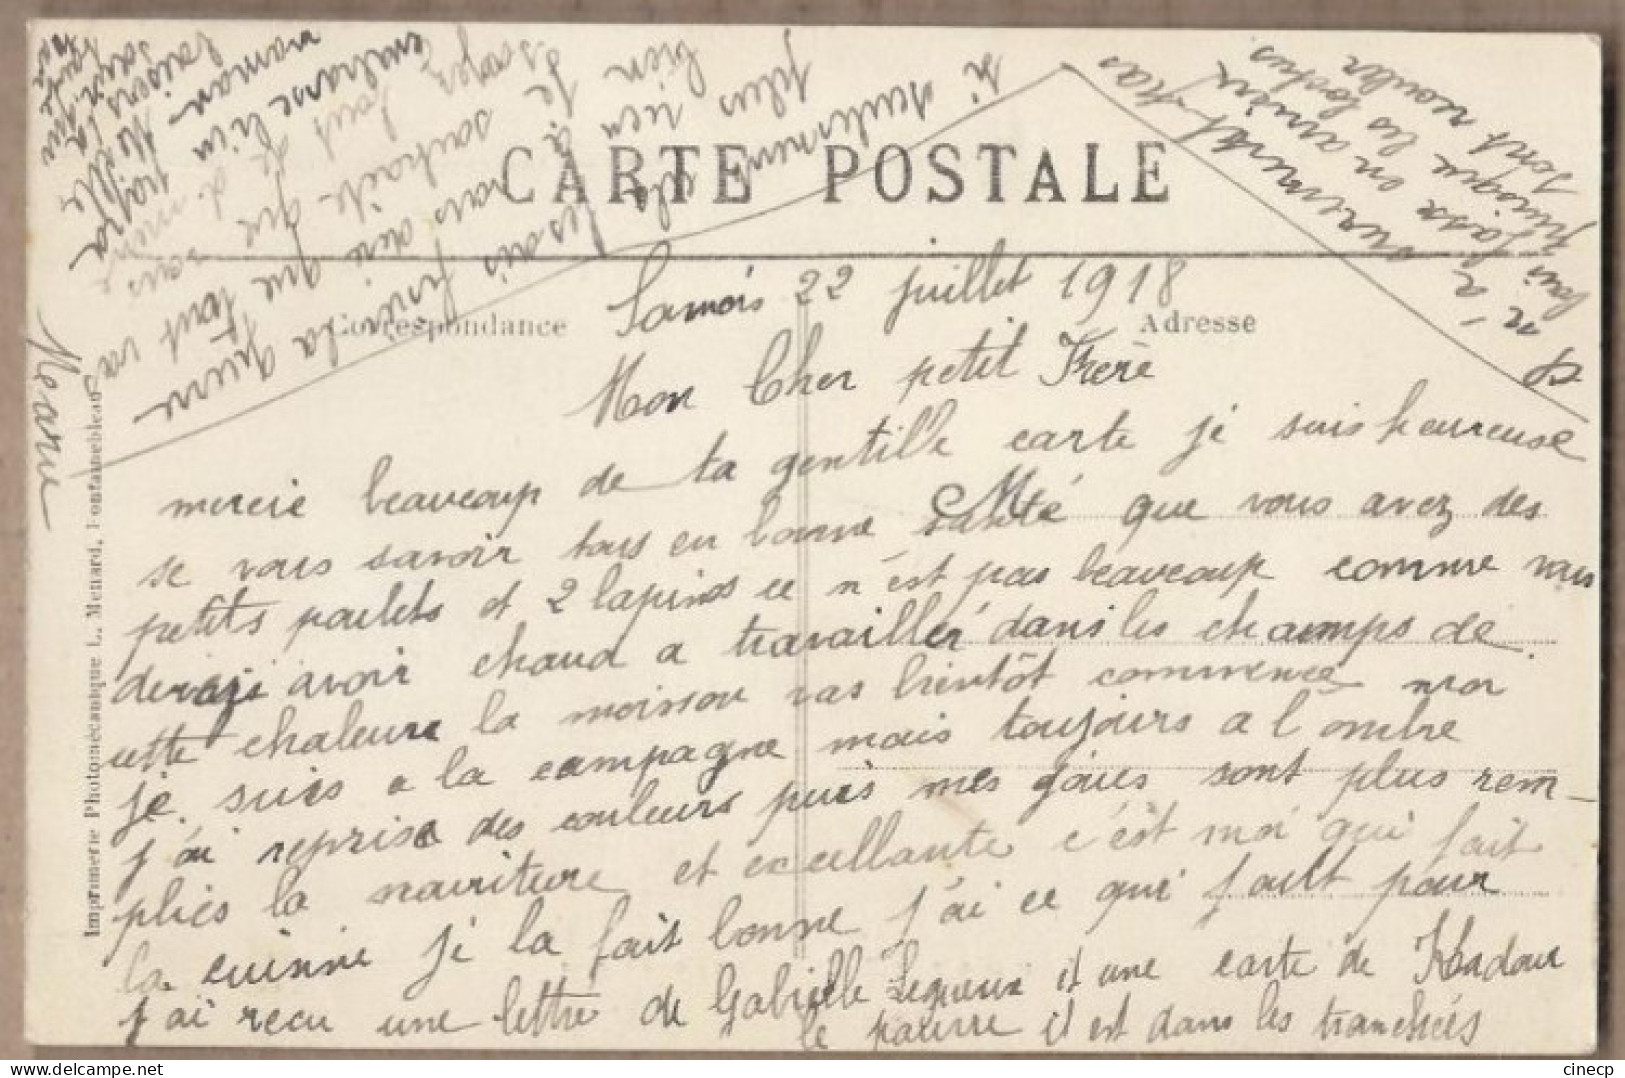 CARTE POSTALE
Correspondance
Adresse
Samois 22 juillet 1918
Mon Cher petit Frère
mercie beaucoup de ta gentille carte je suis heureuse
se vous savoir tous en bonne santé que vous avez des
petits poulets et 2 lapins ce n'est pas beaucoup comme vous
devez avoir chaud a travailler dans les champs de
cette chaleure la moisson vas bientôt commence moi
je suis a la campagne mais toujours a l'ombre
j'ai reprise des couleurs puis mes joues sont plus rem-
plies la nouriture et excellante c'est moi qui fait
la cuinne je la fait bonne j'ai ce qui fault pour
j'ai recu une lettre de Gabrielle Legueux et une carte de
le pauvre il est dans les tranchées
la guerre
que tout va
souhaite que
plus bien
seulement
embrasse bien
maman
baisers
n'a
lui fasse en arrière
puisque les boches
sont
Imprimerie Photomécanique L. Menard, Fontainebleau
cinecp